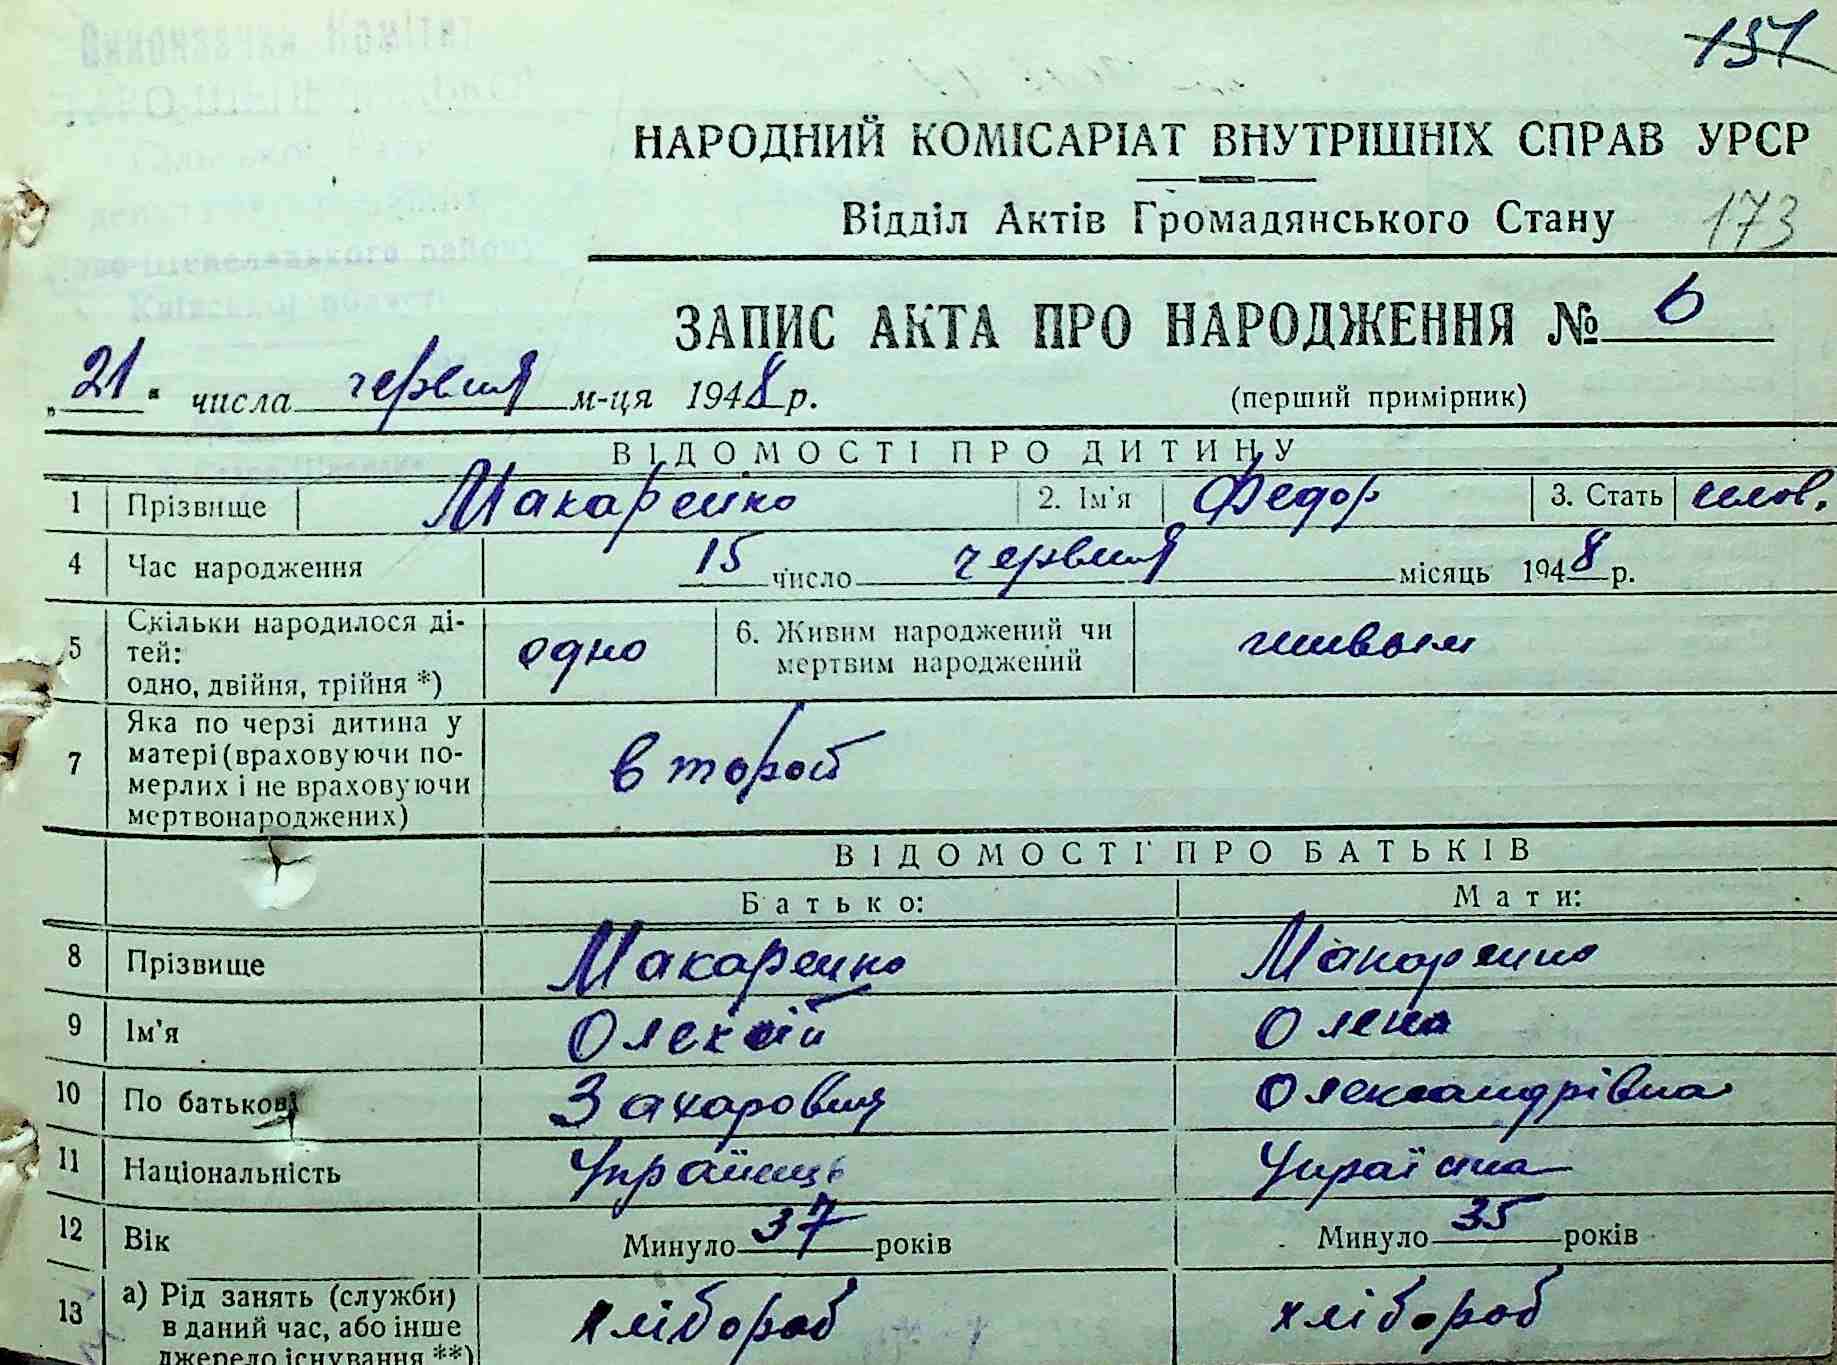 151
НАРОДНИЙ КОМІСАРІАТ ВНУТРІШНІХ СПРАВ УРСР
Відділ Актів Громадянського Стану 173
ЗАПИС АКТА ПРО НАРОДЖЕННЯ № 6
„21" числа червня м-ця 1948 р. (перший примірник)
ВІДОМОСТІ ПРО ДИТИНУ
1 Прізвище Макаренко 2. Ім'я Федор 3. Стать чолов.
4 Час народження 15 число червня місяць 1948 р.
5 Скільки народилося ді-
тей:
одно, двійня, трійня *) одно 6. Живим народжений чи
мертвим народжений живым
7 Яка по черзі дитина у
матері (враховуючи по-
мерлих і не враховуючи
мертвонароджених) второй
ВІДОМОСТІ ПРО БАТЬКІВ
Батько: Мати:
8 Прізвище Макаренко Макаренко
9 Ім'я Олексій Олена
10 По батькові Захарович Олександрівна
11 Національність Українець Українка
12 Вік Минуло 37 років Минуло 35 років
13 а) Рід занять (служби)
в даний час, або інше
джерело існування **) хлібороб хлібороб